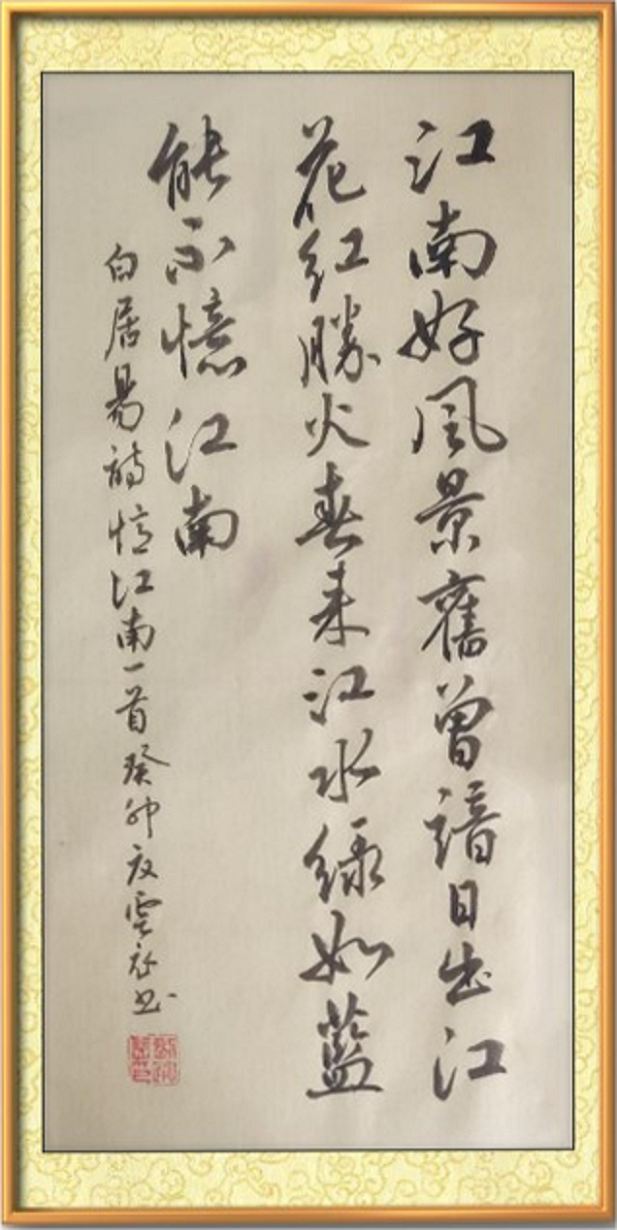 江南好風景舊曾諳日出江
花紅勝火春來江水綠如藍
能不憶江南
白居易詩憶江南一首癸卯夜雲書